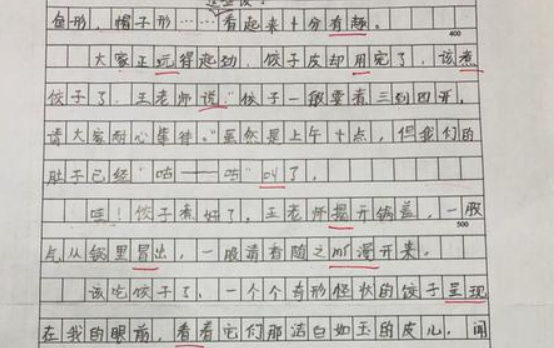 鱼形，帽子形……看起来十分有趣。
400
大家正玩得起劲，饺子皮却用完了，该煮
饺子了，王老师说："饺子一般要看三到四开，
请大家耐心等待。"虽然是上午十点，但我们的
肚子已经"咕——咕"叫了。
哇！饺子煮好了，王老师揭开锅盖，一股
500
气从锅里冒出，一股清香随之弥漫开来。
该吃饺子了，一个个奇形怪状的饺子呈现
在我的眼前，看着它们那洁白如玉的皮儿，闻